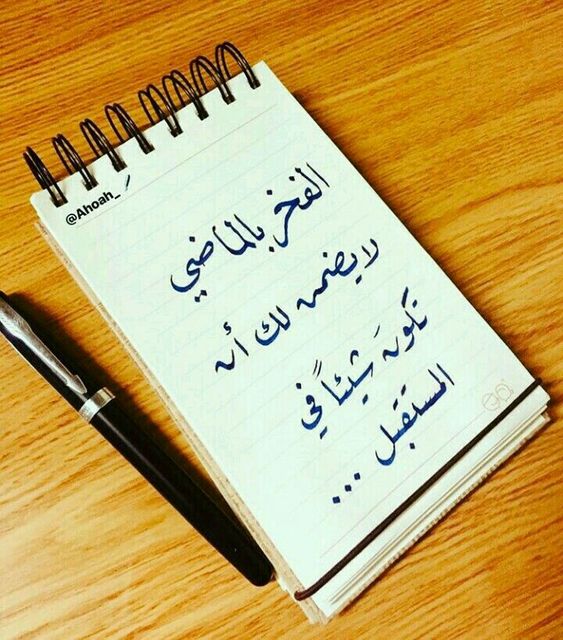 @Ahoah_
الفخر بالماضي
لا يضمن لك أن
تكونَ شيئاً في
المستقبل ...